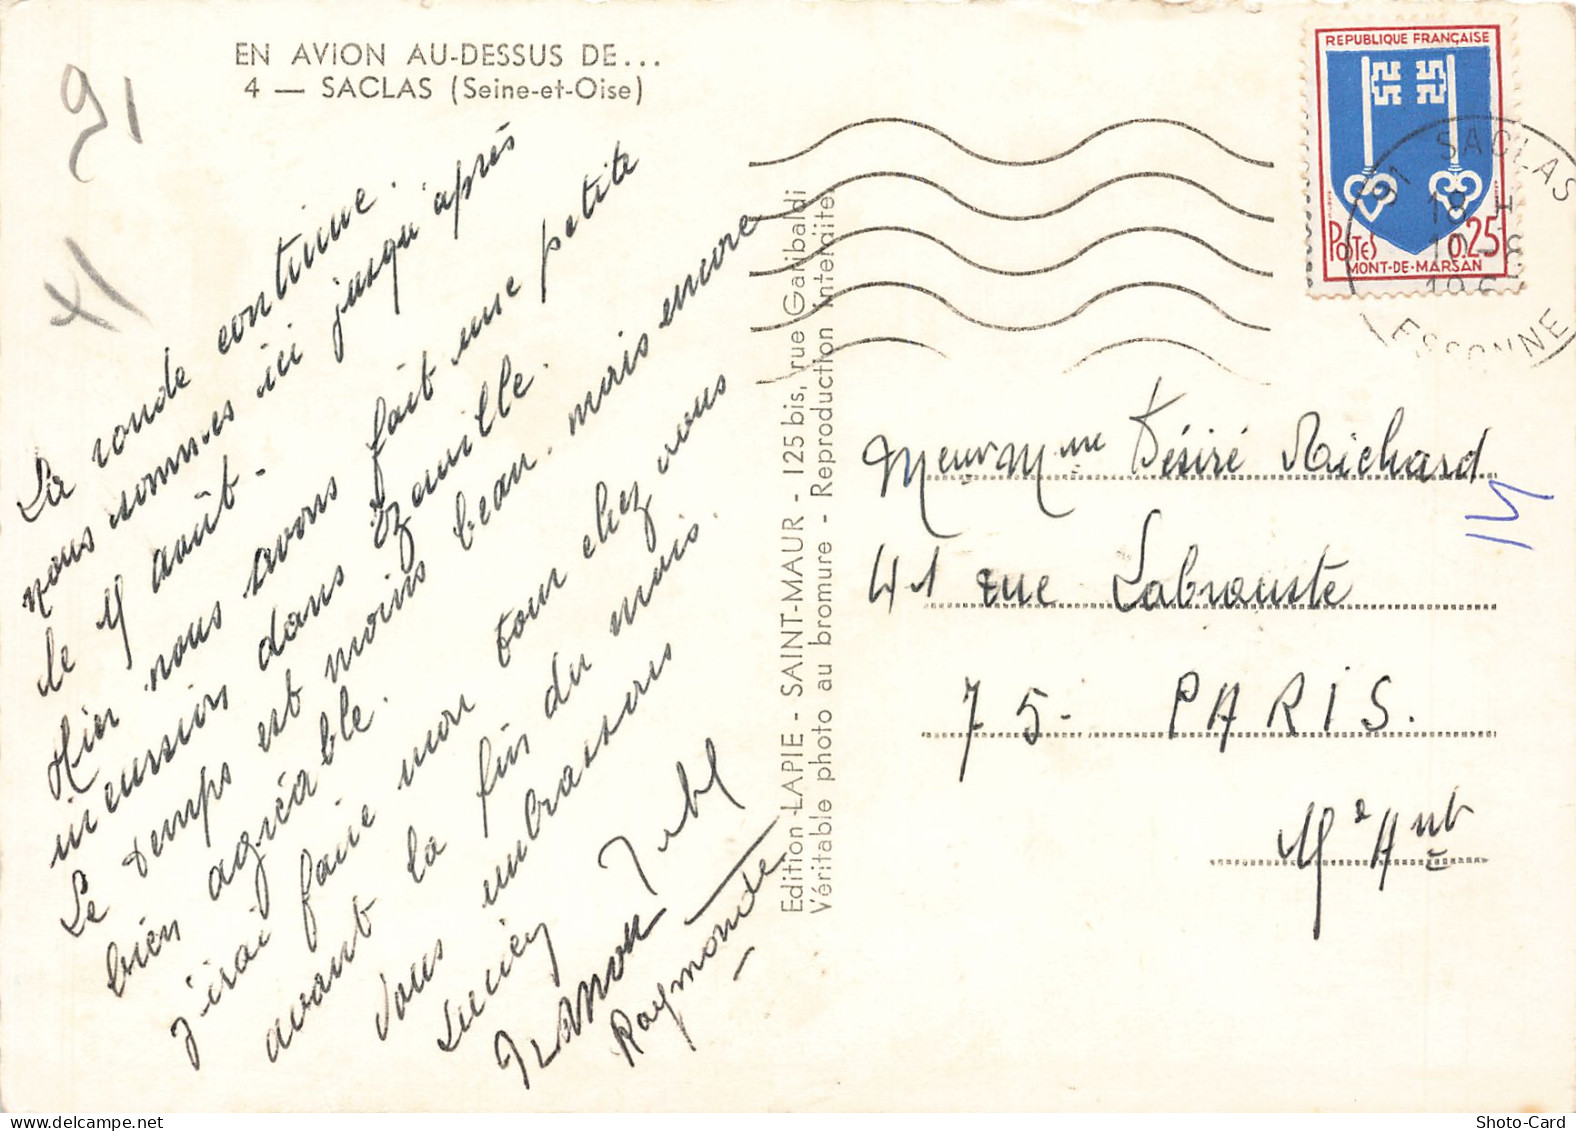 EN AVION AU-DESSUS DE...
4 — SACLAS (Seine-et-Oise)
91
X1
La ronde continue.
nous sommes ici jusqu'après
le 15 août.
Hier nous avons fait une petite
incursion dans Ezanville.
Le temps est moins beau. mais encore
bien agréable.
j'irai faire mon tour chez vous
avant la fin du mois.
Vous embrassons
Lucien
Raymonde
Edition LAPIE - SAINT-MAUR - 125 bis, rue Garibaldi
Véritable photo au bromure - Reproduction interdite
REPUBLIQUE FRANÇAISE
POSTES 0.25
MONT-DE-MARSAN
91 SACLAS
18 H
ESSONNE
Meur Mme Désiré Richard
41 rue Labrouste
75 - PARIS.
Shoto-Card